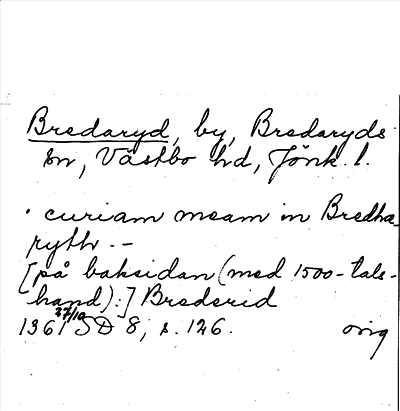 Bredaryd, by, Bredaryds
sn, Västbo hd, Jönk. l.
· curiam meam in Bredha-
ryth --
[på baksidan (med 1500-tals-
hand):] Brederid
1361 27/10 SD 8, s. 126. orig